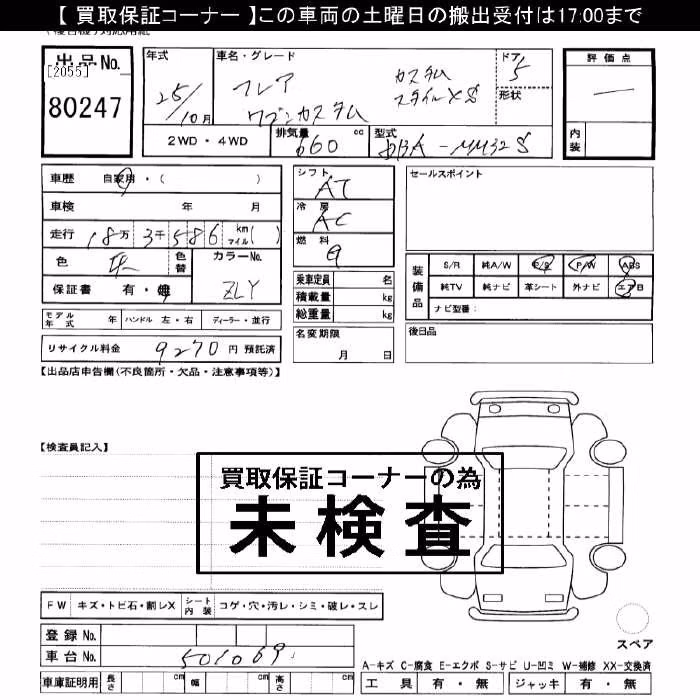 【 買取保証コーナー 】この車両の土曜日の搬出受付は17:00まで
出品No.
[2055]
80247
年式
25/10月
車名・グレード
フレア カスタム
ワゴンカスタム スタイルXS
ドア
5
形状
評価点
内装
2WD・4WD
排気量
660 cc
型式
DBA-MM32S
車歴 自家用・( )
車検 年 月
走行 18万 3千 586 km マイル( )
色 灰 色替 カラーNo.
保証書 有・無 ZLY
モデル年式 年 ハンドル 左・右 ディーラー・並行
リサイクル料金 9270 円 預託済
シフト
AT
冷房
AC
燃料
G
乗車定員 名
積載量 kg
総重量 kg
名変期限
月 日
セールスポイント
装備品
S/R 純A/W P/S P/W ABS
純TV 純ナビ 革シート 外ナビ エアB
ナビ型番:
後日品
【出品店申告欄(不良箇所・欠品・注意事項等)】
【検査員記入】
買取保証コーナーの為
未検査
FW キズ・トビ石・割レX シート内装 コゲ・穴・汚レ・シミ・破レ・スレ
登録No.
車台No. 501069
車庫証明用 長さ cm 幅 cm 高さ cm
スペア
A-キズ C-腐食 E-エクボ S-サビ U-凹ミ W-補修 XX-交換済
工具 有・無 ジャッキ 有・無